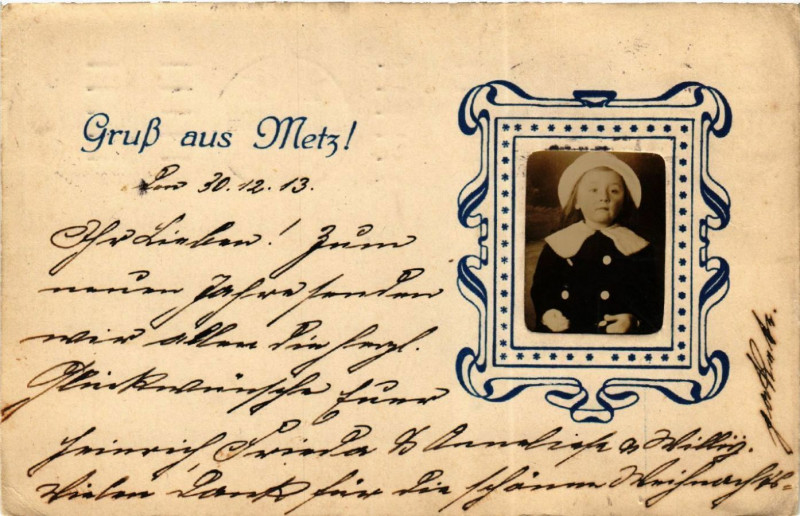 Gruß aus Metz!
Den 30.12.13.
Ihr Lieben! Zum
neuen Jahre senden
wir allen die herzl.
Glückwünsche Euer
Heinrich, Frieda & Anneliese & Willy.
Vielen Dank für die schönen Weihnachts-